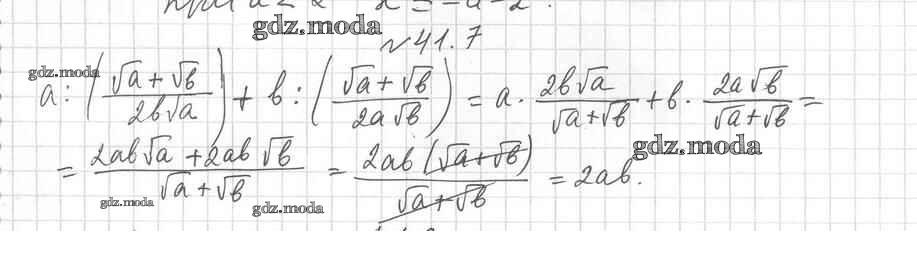 gdz.moda
№ 41.7
gdz.moda
a : ((√a + √b)/(2b√a)) + b : ((√a + √b)/(2a√b)) = a · (2b√a)/(√a + √b) + b · (2a√b)/(√a + √b) =
gdz.moda
= (2ab√a + 2ab√b)/(√a + √b) = (2ab(√a + √b))/(√a + √b) = 2ab.
gdz.moda gdz.moda